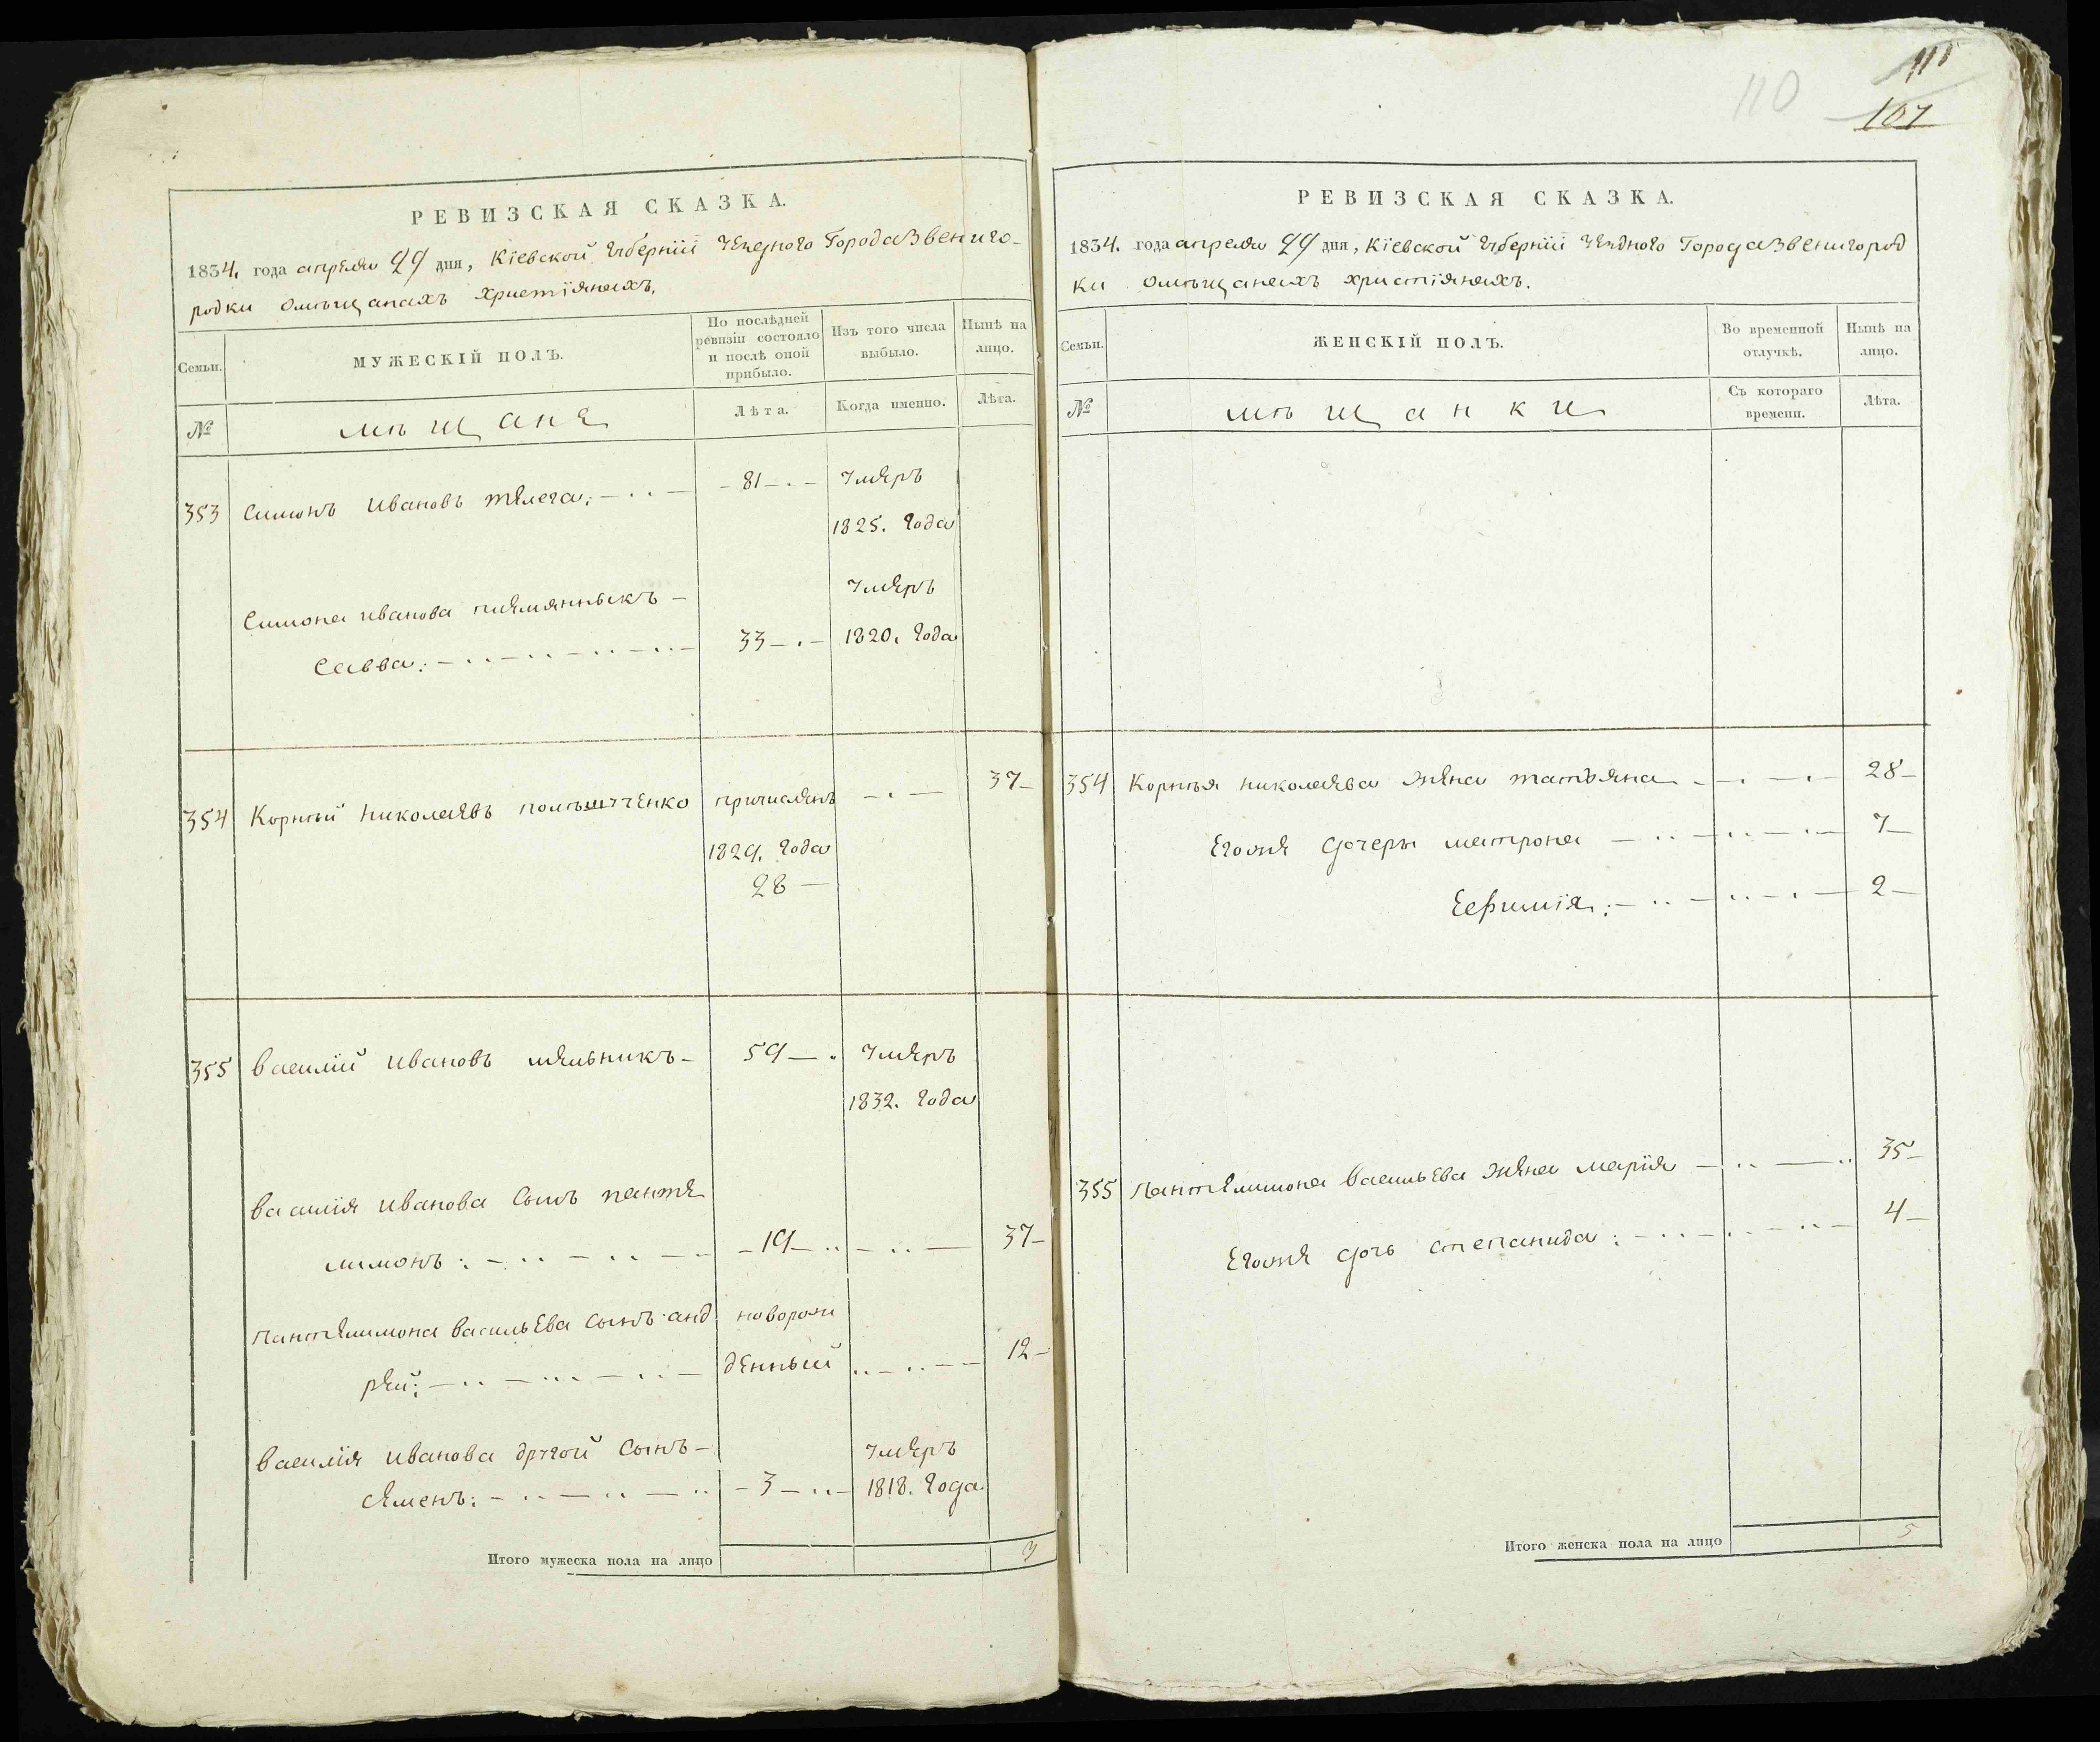 РЕВИЗСКАЯ СКАЗКА.
1834. года апреля 29 дня, Кіевской Губерніи Уезного Города Звениго-
родки Омѣщанахъ христіянахъ.
Семьи.
МУЖЕСКІЙ ПОЛЪ.
По послѣдней
ревизіи состояло
и послѣ оной
прибыло.
Изъ того числа
выбыло.
Нынѣ на
лицо.
№
мѣщане
Лѣта.
Когда именно.
Лѣта.
353 Симонъ Ивановъ телега: 81 умеръ
1825. Года
Симона Иванова племянныкъ умеръ
Савва: 33 1820. Года
354 Корнѣй Николаевъ причисленъ 37
1829. Года
28
355 Василій Ивановъ мельникъ 59 умеръ
1832. Года
Василія Иванова Сынъ панте
лимонъ: 19 37
Пантелимона Васильева Сынъ анд новорож
рей: денный 12
Василія Иванова другой Сынъ умеръ
семенъ: 3 1818. Года
Итого мужеска пола на лицо 3
110
111
107
РЕВИЗСКАЯ СКАЗКА.
1834. года апреля 29 дня, Кіевской Губерніи Уездного Города Звенигород
ки Омѣщанахъ христіянахъ.
Семьи.
ЖЕНСКІЙ ПОЛЪ.
Во временной
отлучкѣ.
Нынѣ на
лицо.
№
мѣщанки
Съ котораго
времени.
Лѣта.
354 Корнѣя Николаева жена татьяна 28
Егоже дочеры матрона 7
Ефимія: 2
355 Пантелимона Васильева жена марія 35
Егоже дочь степанида: 4
Итого женска пола на лицо 5